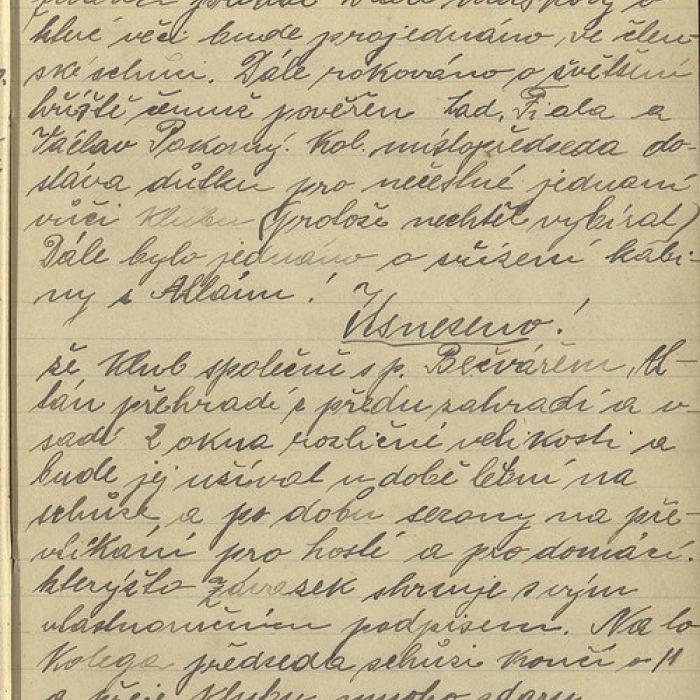 hlné věci bude projednáno, ve člen-
ské schůzi. Dále rokováno o světšení
hřiště čemuž pověřen Lad. Fiala a
Václav Pokorný. Kol. místopředseda do-
stává důtku pro nečestné jednaní
vůči klubu (protože nechtěl vybírat)
Dále bylo jednáno o zřízení kabi-
ny z Altánu!
Usneseno!
že klub společně s p. Bečvářem, Al-
tán přehradí z předu zahradí a v
sadí 2 okna rozličné velikosti a
bude jej užívat v době letní na
schůze, a po dobu sezony na pře-
vlíkání pro hosté a pro domácí.
kterýžto závazek stvrzuje svým
vlastnoručním podpisem. Na to
Kolega předseda schůzi končí o 11
a přeje klubu mnoho zdaru